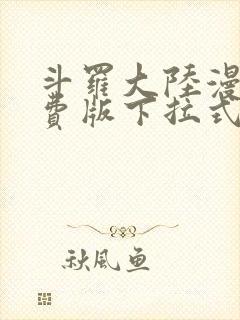 斗羅大陸漫
費版下拉式
秋風魚